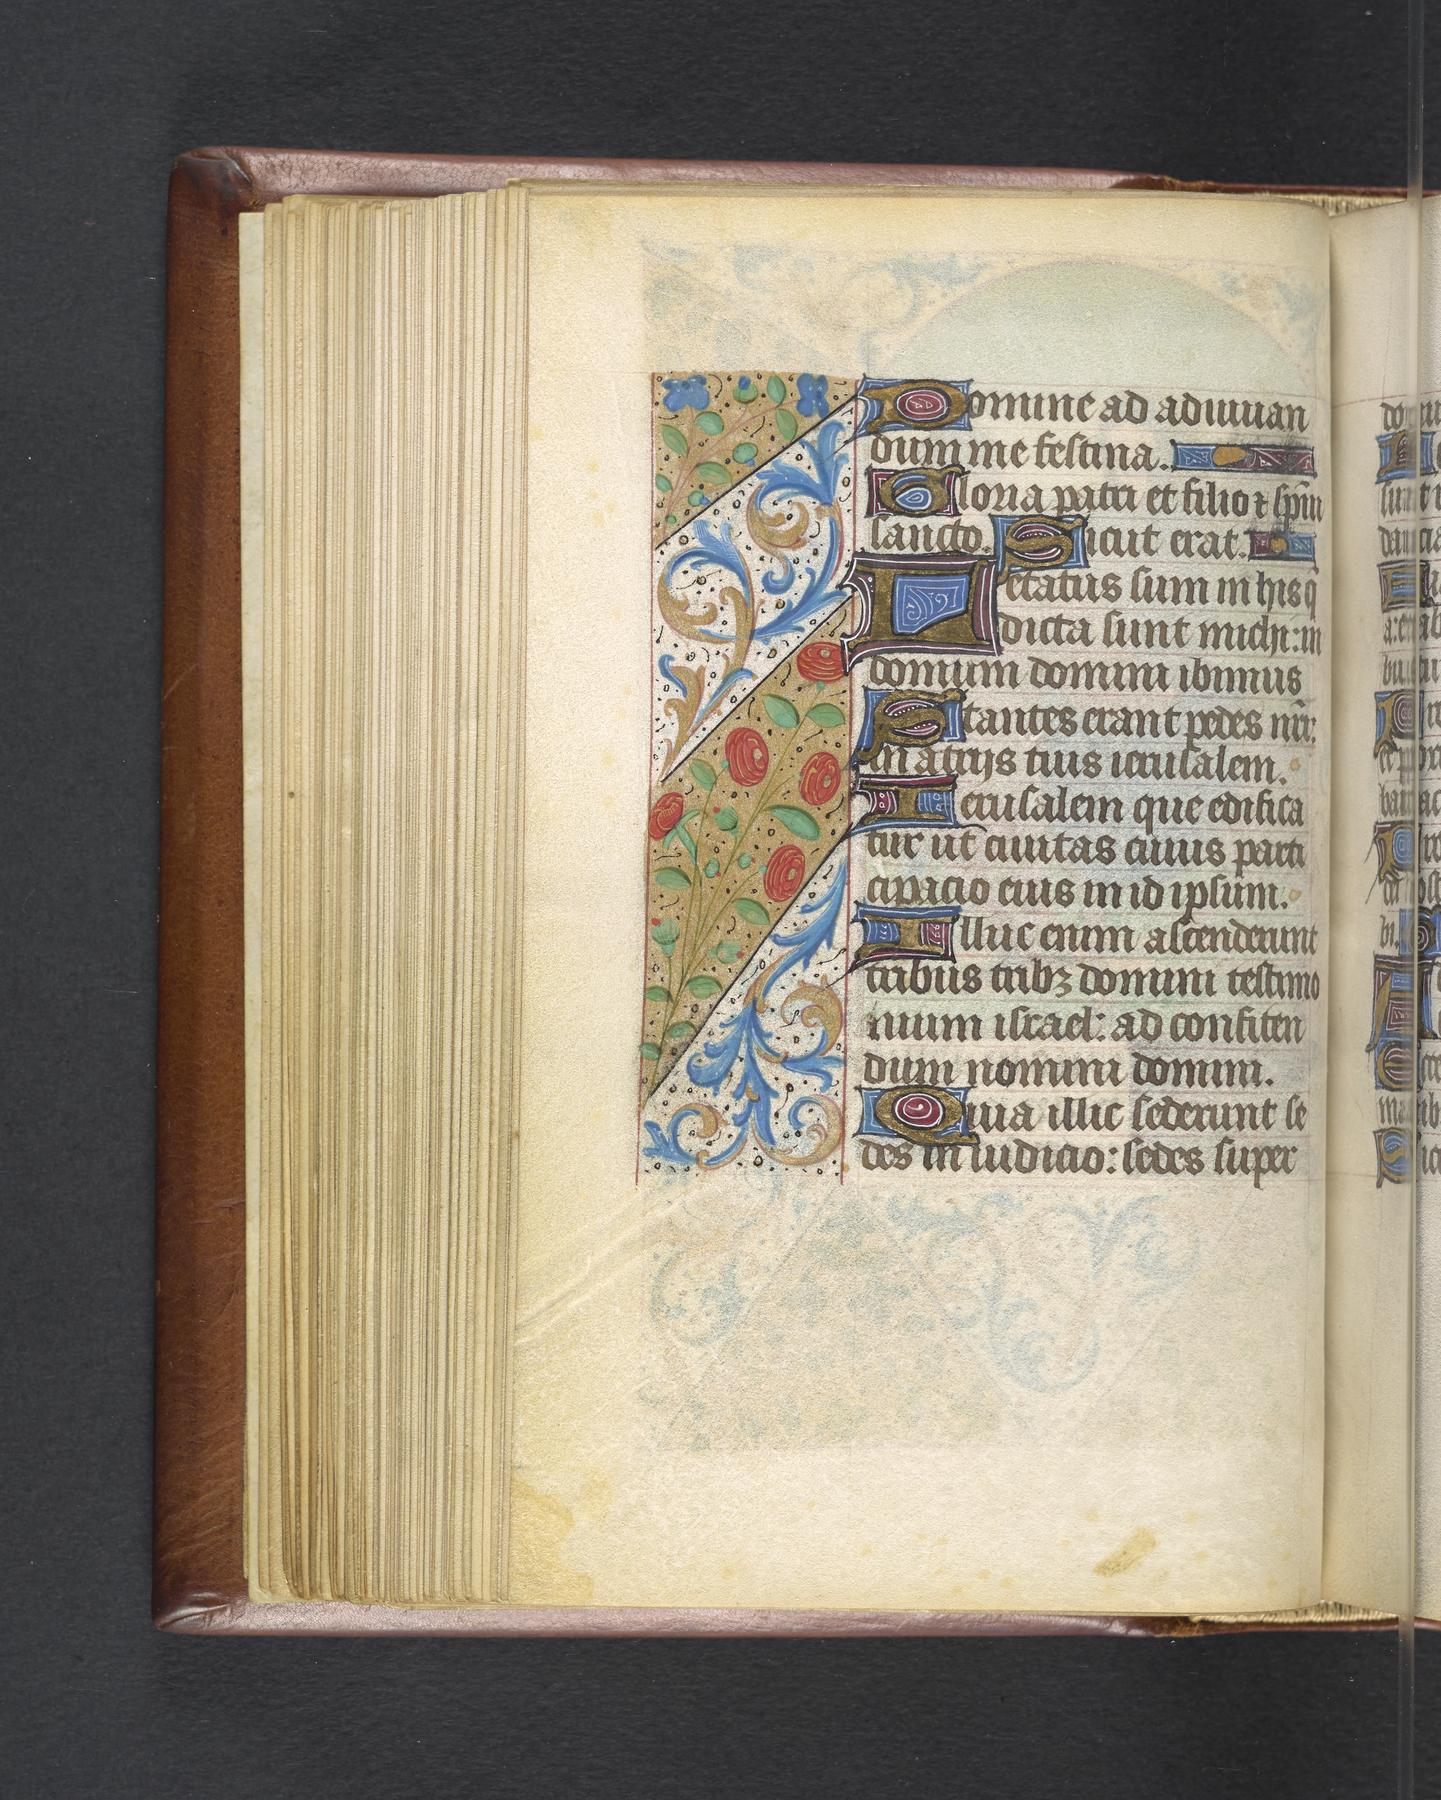 Domine ad adiuuan
dum me festina.
Gloria patri et filio ⁊ spũi
sancto. Sicut erat.
Letatus sum in his q̃
dicta sunt michi: in
domum domini ibimus
Stantes erant pedes nr̃i:
in atrijs tuis ierusalem.
Ierusalem que edifica
tur ut ciuitas cuius parti
cipacio eius in id ipsum.
Illuc enim ascenderunt
tribus tribꝫ domini testimo
nium israel: ad confiten
dum nomini domini.
Quia illic sederunt se
des in iudicio: sedes super